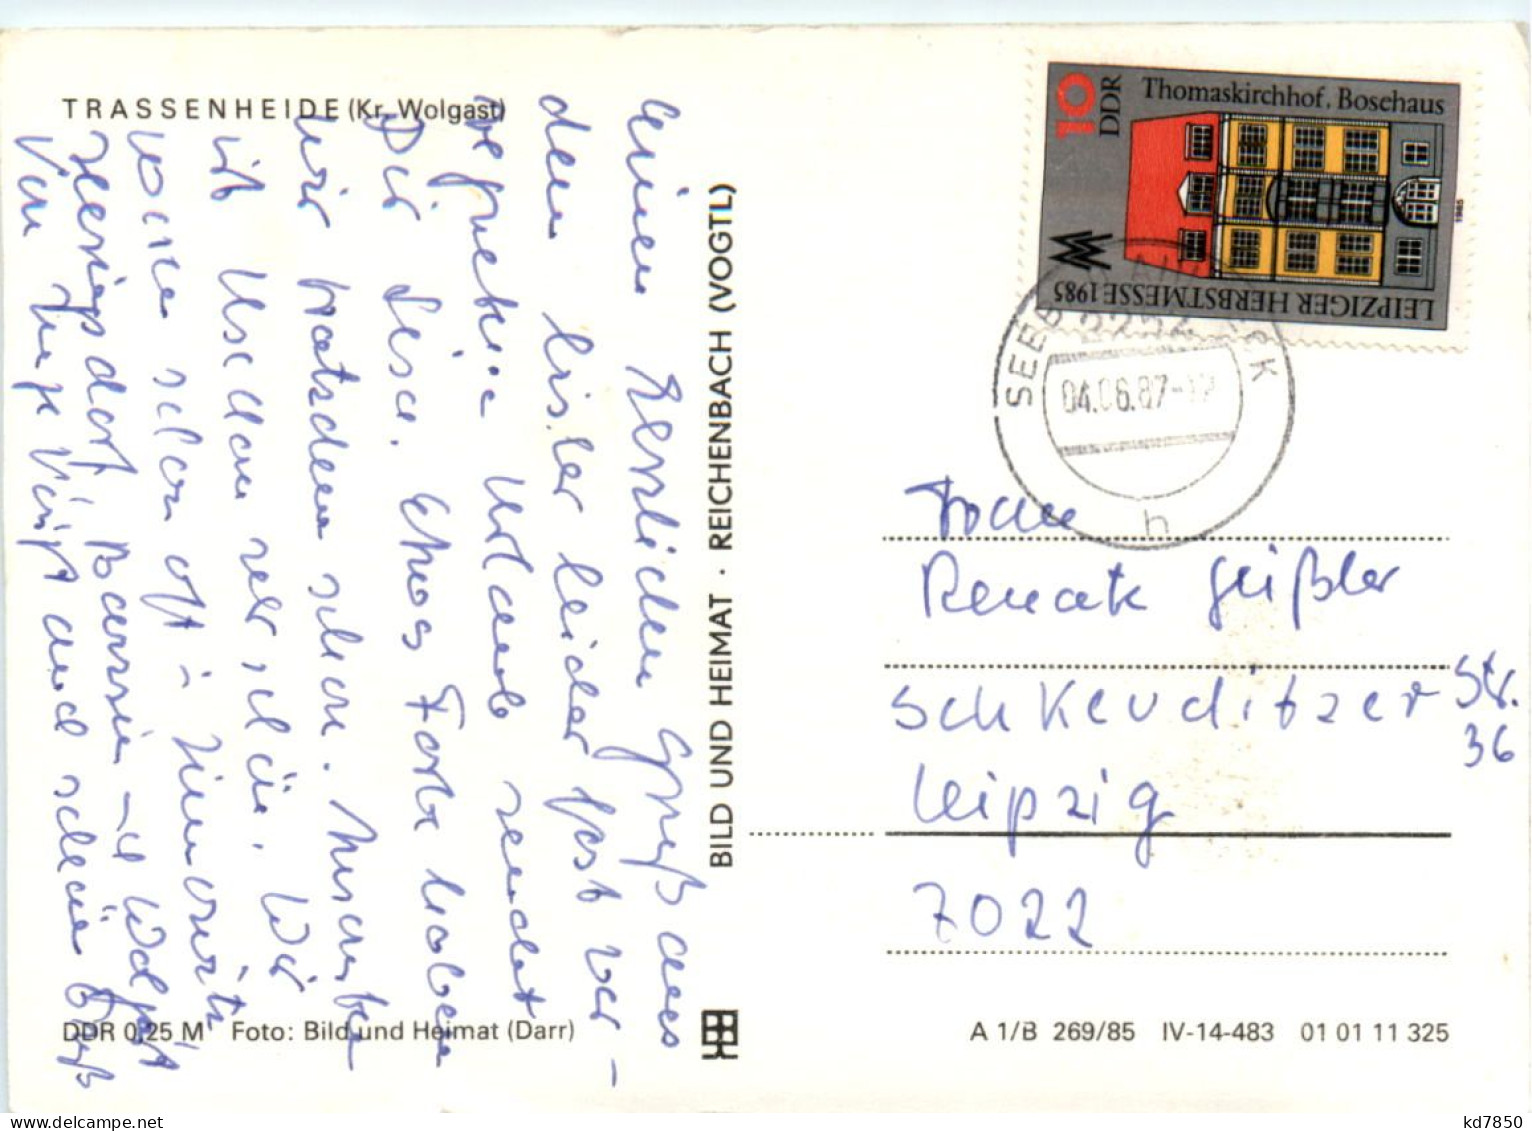 TRASSENHEIDE (Kr. Wolgast)
einen herzlichen Gruß aus
dem bisher leider fast ver-
regneten Urlaub sendet
Dir Lisa. Etwas Farbe haben
wir trotzdem schon.
ist Usedom sehr schön. Wir
waren schon oft in Zinnowitz
Heringsdorf, Bansin
Von
BILD UND HEIMAT · REICHENBACH (VOGTL)
DDR 0,25 M Foto: Bild und Heimat (Darr)
10
DDR
Thomaskirchhof, Bosehaus
1985
LEIPZIGER HERBSTMESSE 1985
SEEBAD
04.06.87-12
h
Frau
Renate Geißler
Schkeuditzer Str.
36
Leipzig
7022
A 1/B 269/85 IV-14-483 01 01 11 325
kd7850